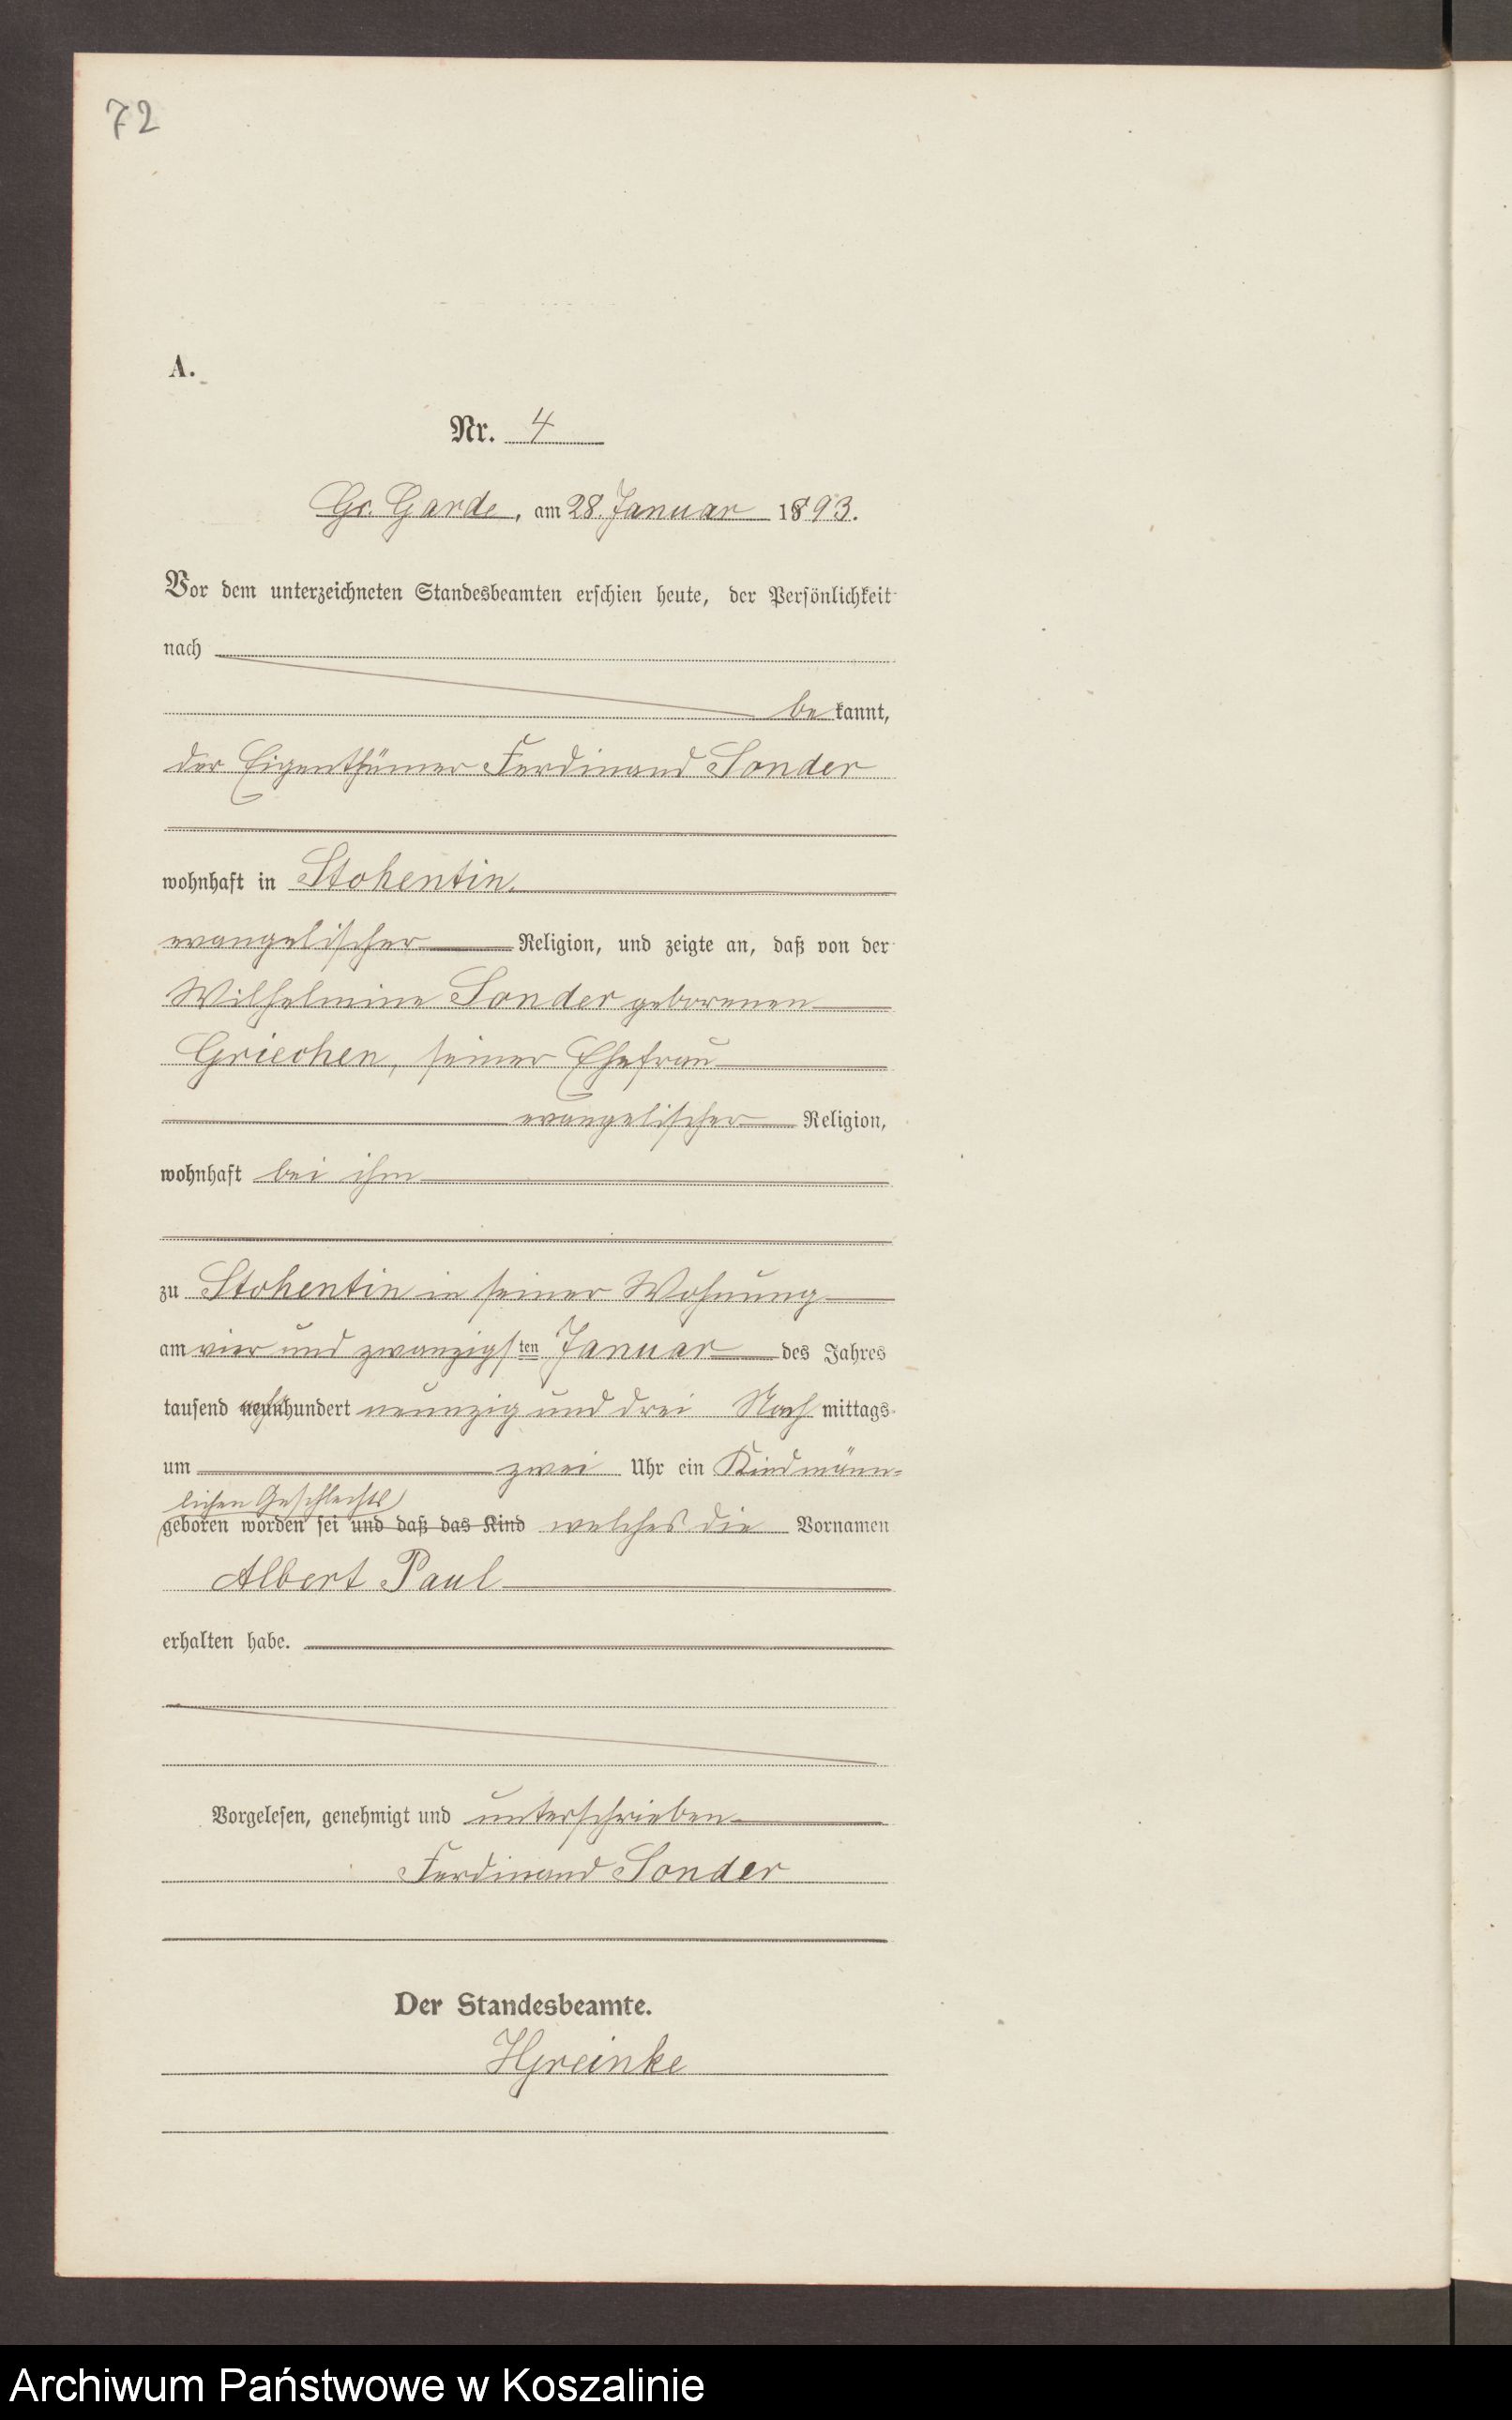 72
A.
Nr. 4
Gr. Garde, am 28. Januar 1893.
Vor dem unterzeichneten Standesbeamten erschien heute, der Persönlichkeit
nach
bekannt,
der Eigenthümer Ferdinand Sonder
wohnhaft in Stohentin.
evangelischer Religion, und zeigte an, daß von der
Wilhelmine Sonder geborenen
Griechen, seiner Ehefrau
evangelischer Religion,
wohnhaft bei ihm
zu Stohentin in seiner Wohnung
am vier und zwanzigsten Januar des Jahres
tausend neunhundert neunzig und drei Nachmittags
um zwei Uhr ein Kind männ-
lichen Geschlechts
geboren worden sei und daß das Kind welches die Vornamen
Albert Paul
erhalten habe.
Vorgelesen, genehmigt und unterschrieben
Ferdinand Sonder
Der Standesbeamte.
HGreinke
Archiwum Państwowe w Koszalinie